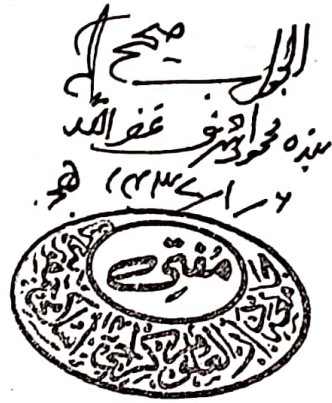 الجواب صحیح
بندہ محمود اشرف غفر اللہ لہ
۶/۱/۱۴۳۷ھ
مفتی
جامعہ دارالعلوم کراچی